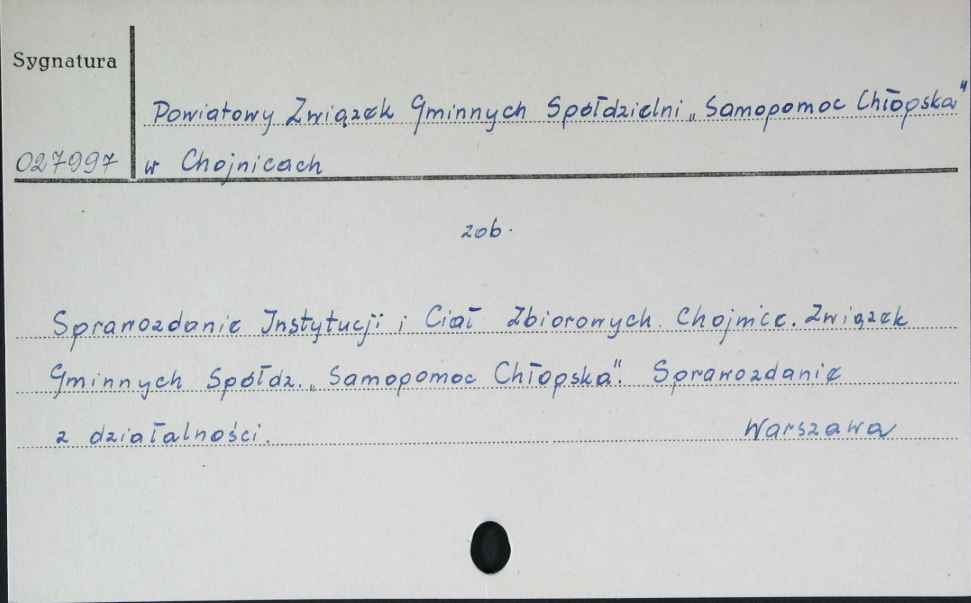 Sygnatura
Powiatowy Związek Gminnych Spółdzielni „Samopomoc Chłopska"
027997 w Chojnicach
zob.
Sprawozdanie Instytucji i Ciał Zbiorowych. Chojnice. Związek
Gminnych Spółdz. „Samopomoc Chłopska". Sprawozdanie
z działalności. Warszawa